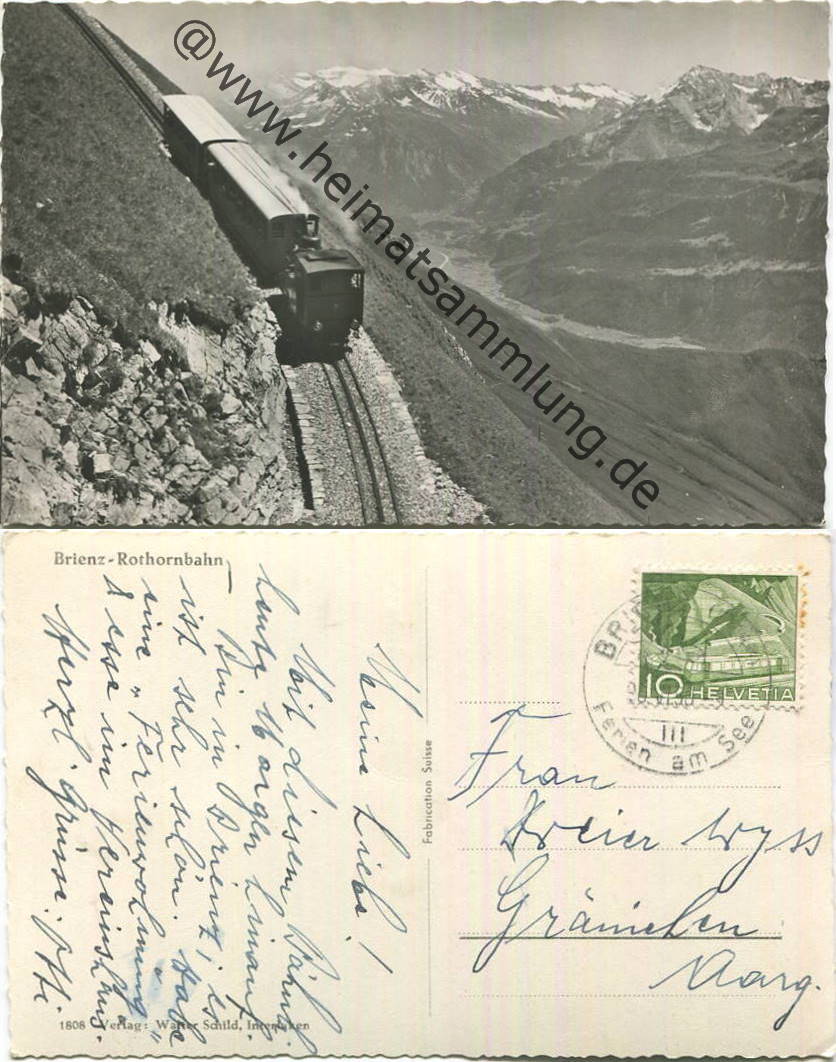 @www.heimatsammlung.de
Brienz-Rothornbahn
Meine Liebe!
Mit diesem Bähnli
heute Morgen hinauf.
Bin in Brienz, es
ist sehr schön. Habe
eine "Ferienwohnung"
& esse im Vereinshaus.
Herzl. Grüsse:
1808 Verlag: Walter Schild, Interlaken
Fabrication Suisse
BRI
Ferien am See
III
10 HELVETIA
Frau
Dreier Wyss
Gränichen
Aarg.